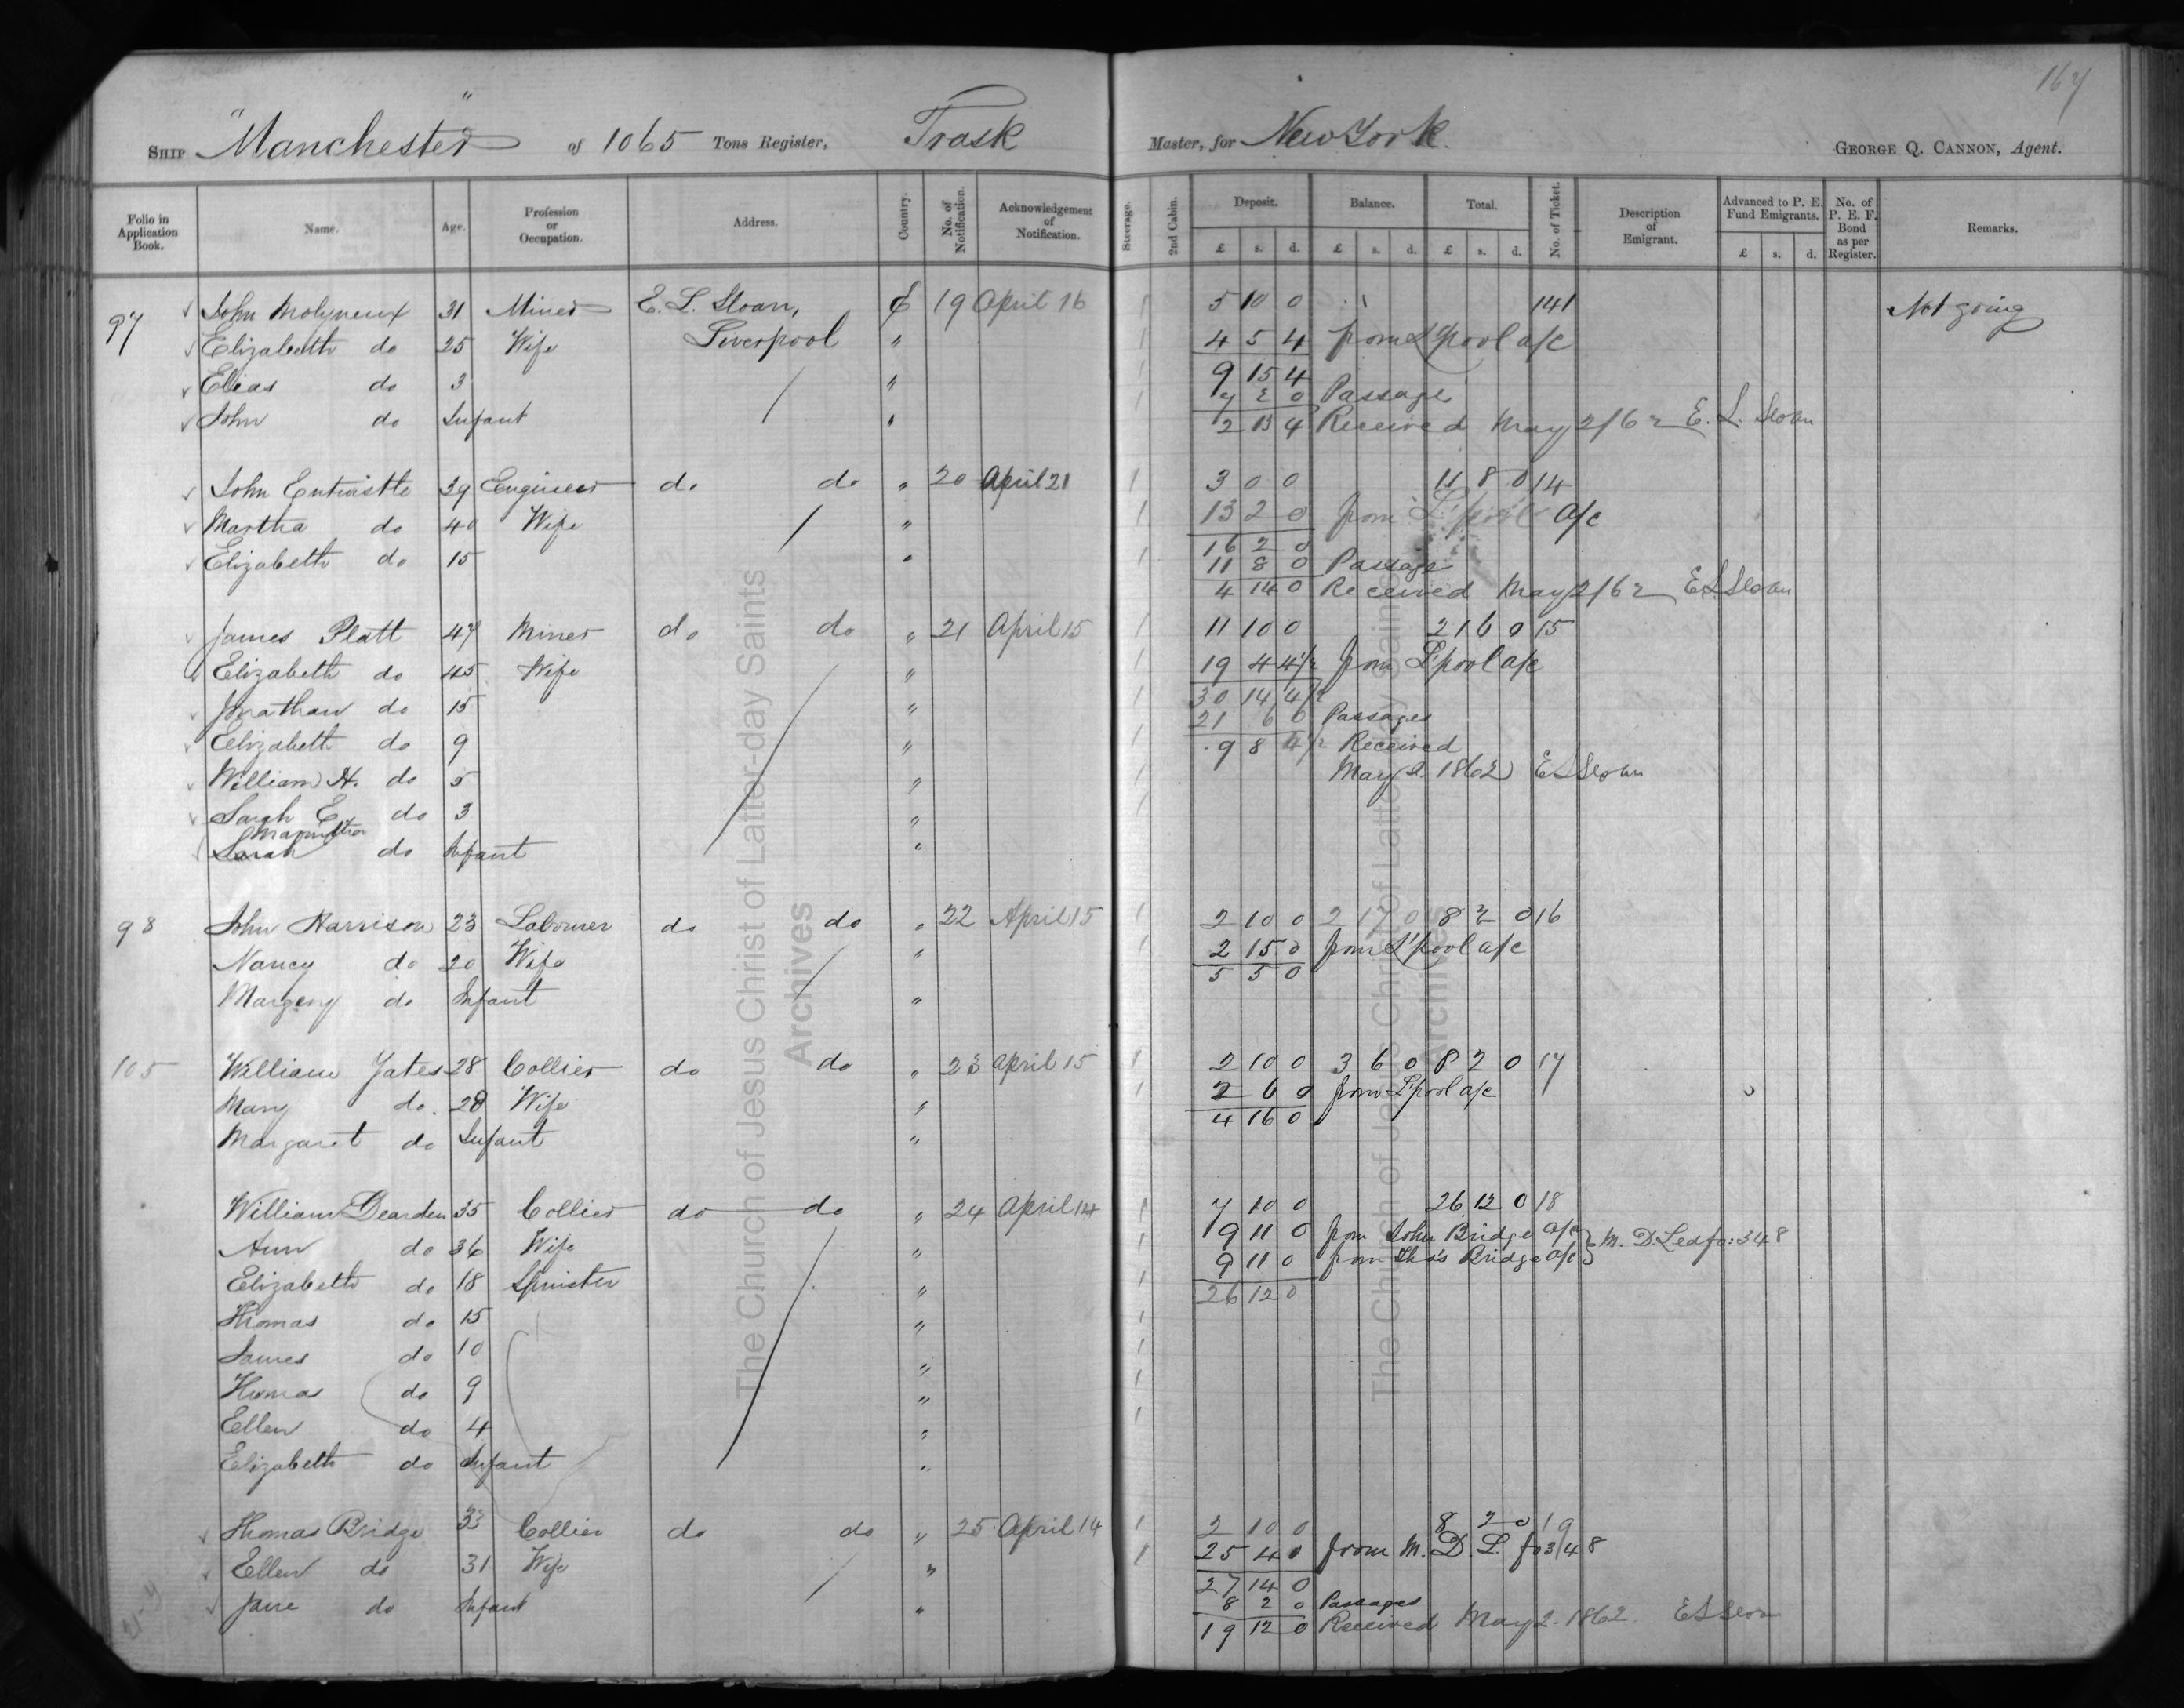 167
SHIP "Manchester" of 1065 Tons Register, Trask Master, for New York. GEORGE Q. CANNON, Agent.
Folio in Application Book. Name. Age. Profession or Occupation. Address. Country. No. of Notification. Acknowledgement of Notification. Steerage. 2nd Cabin. Deposit. Balance. Total. No. of Ticket. Description of Emigrant. Advanced to P. E. Fund Emigrants. No. of P. E. F. Bond as per Register. Remarks.
£ s. d. £ s. d. £ s. d. £ s. d.
97 John Molyneux 31 Miner E. L. Sloan, E 19 April 16 1 5 10 0 141 Not going
Elizabeth do 25 Wife Liverpool " 1 4 5 4 from L'pool a/c
Elias do 3 " 1 9 15 4
John do Infant " 1 7 2 0 Passages
2 13 4 Received May 2/62 E. L. Sloan
John Entwistle 39 Engineer do do " 20 April 21 1 3 0 0 11 8 0 14
Martha do 40 Wife " 1 13 2 0 from L'pool a/c
Elizabeth do 15 " 1 16 2 0
11 8 0 Passage
4 14 0 Received May 2/62 E L Sloan
James Platt 47 Miner do do " 21 April 15 1 11 10 0 21 6 0 15
Elizabeth do 45 Wife " 1 19 4 4 1/2 from L'pool a/c
Jonathan do 15 " 1 30 14 4 1/2
21 6 0 Passages
Elizabeth do 9 " 1 9 8 4 1/2 Received
William H. do 5 " 1 May 2. 1862 E L Sloan
Sarah E do 3 " 1
Sarah do Infant "
98 John Harrison 23 Labourer do do " 22 April 15 1 2 10 0 2 17 0 8 2 0 16
Nancy do 20 Wife " 1 2 15 0 from L'pool a/c
5 5 0
Margery do Infant "
105 William Yates 28 Collier do do " 23 April 15 1 2 10 0 3 6 0 8 2 0 17
Mary do. 28 Wife " 1 2 6 0 from L'pool a/c
4 16 0
Margaret do Infant "
William Dearden 35 Collier do do " 24 April 14 1 7 10 0 26 12 0 18
Ann do 36 Wife " 1 9 11 0 from John Bridge a/c } M. D. Led fo: 348
9 11 0 from Tho's Bridge a/c }
Elizabeth do 18 Spinster " 1 26 12 0
Thomas do 15 " 1
James do 10 " 1
Thomas do 9 " 1
Ellen do 4 " 1
Elizabeth do Infant "
Thomas Bridge 33 Collier do do " 25 April 14 1 2 10 0 8 2 0 19
Ellen do 31 Wife " 1 25 4 0 from M. D. L. fo 348
27 14 0
Jane do Infant " 8 2 0 Passages
19 12 0 Received May 2. 1862. E L Sloan
The Church of Jesus Christ of Latter-day Saints
Archives
The Church of Jesus Christ of Latter-day Saints
Archives